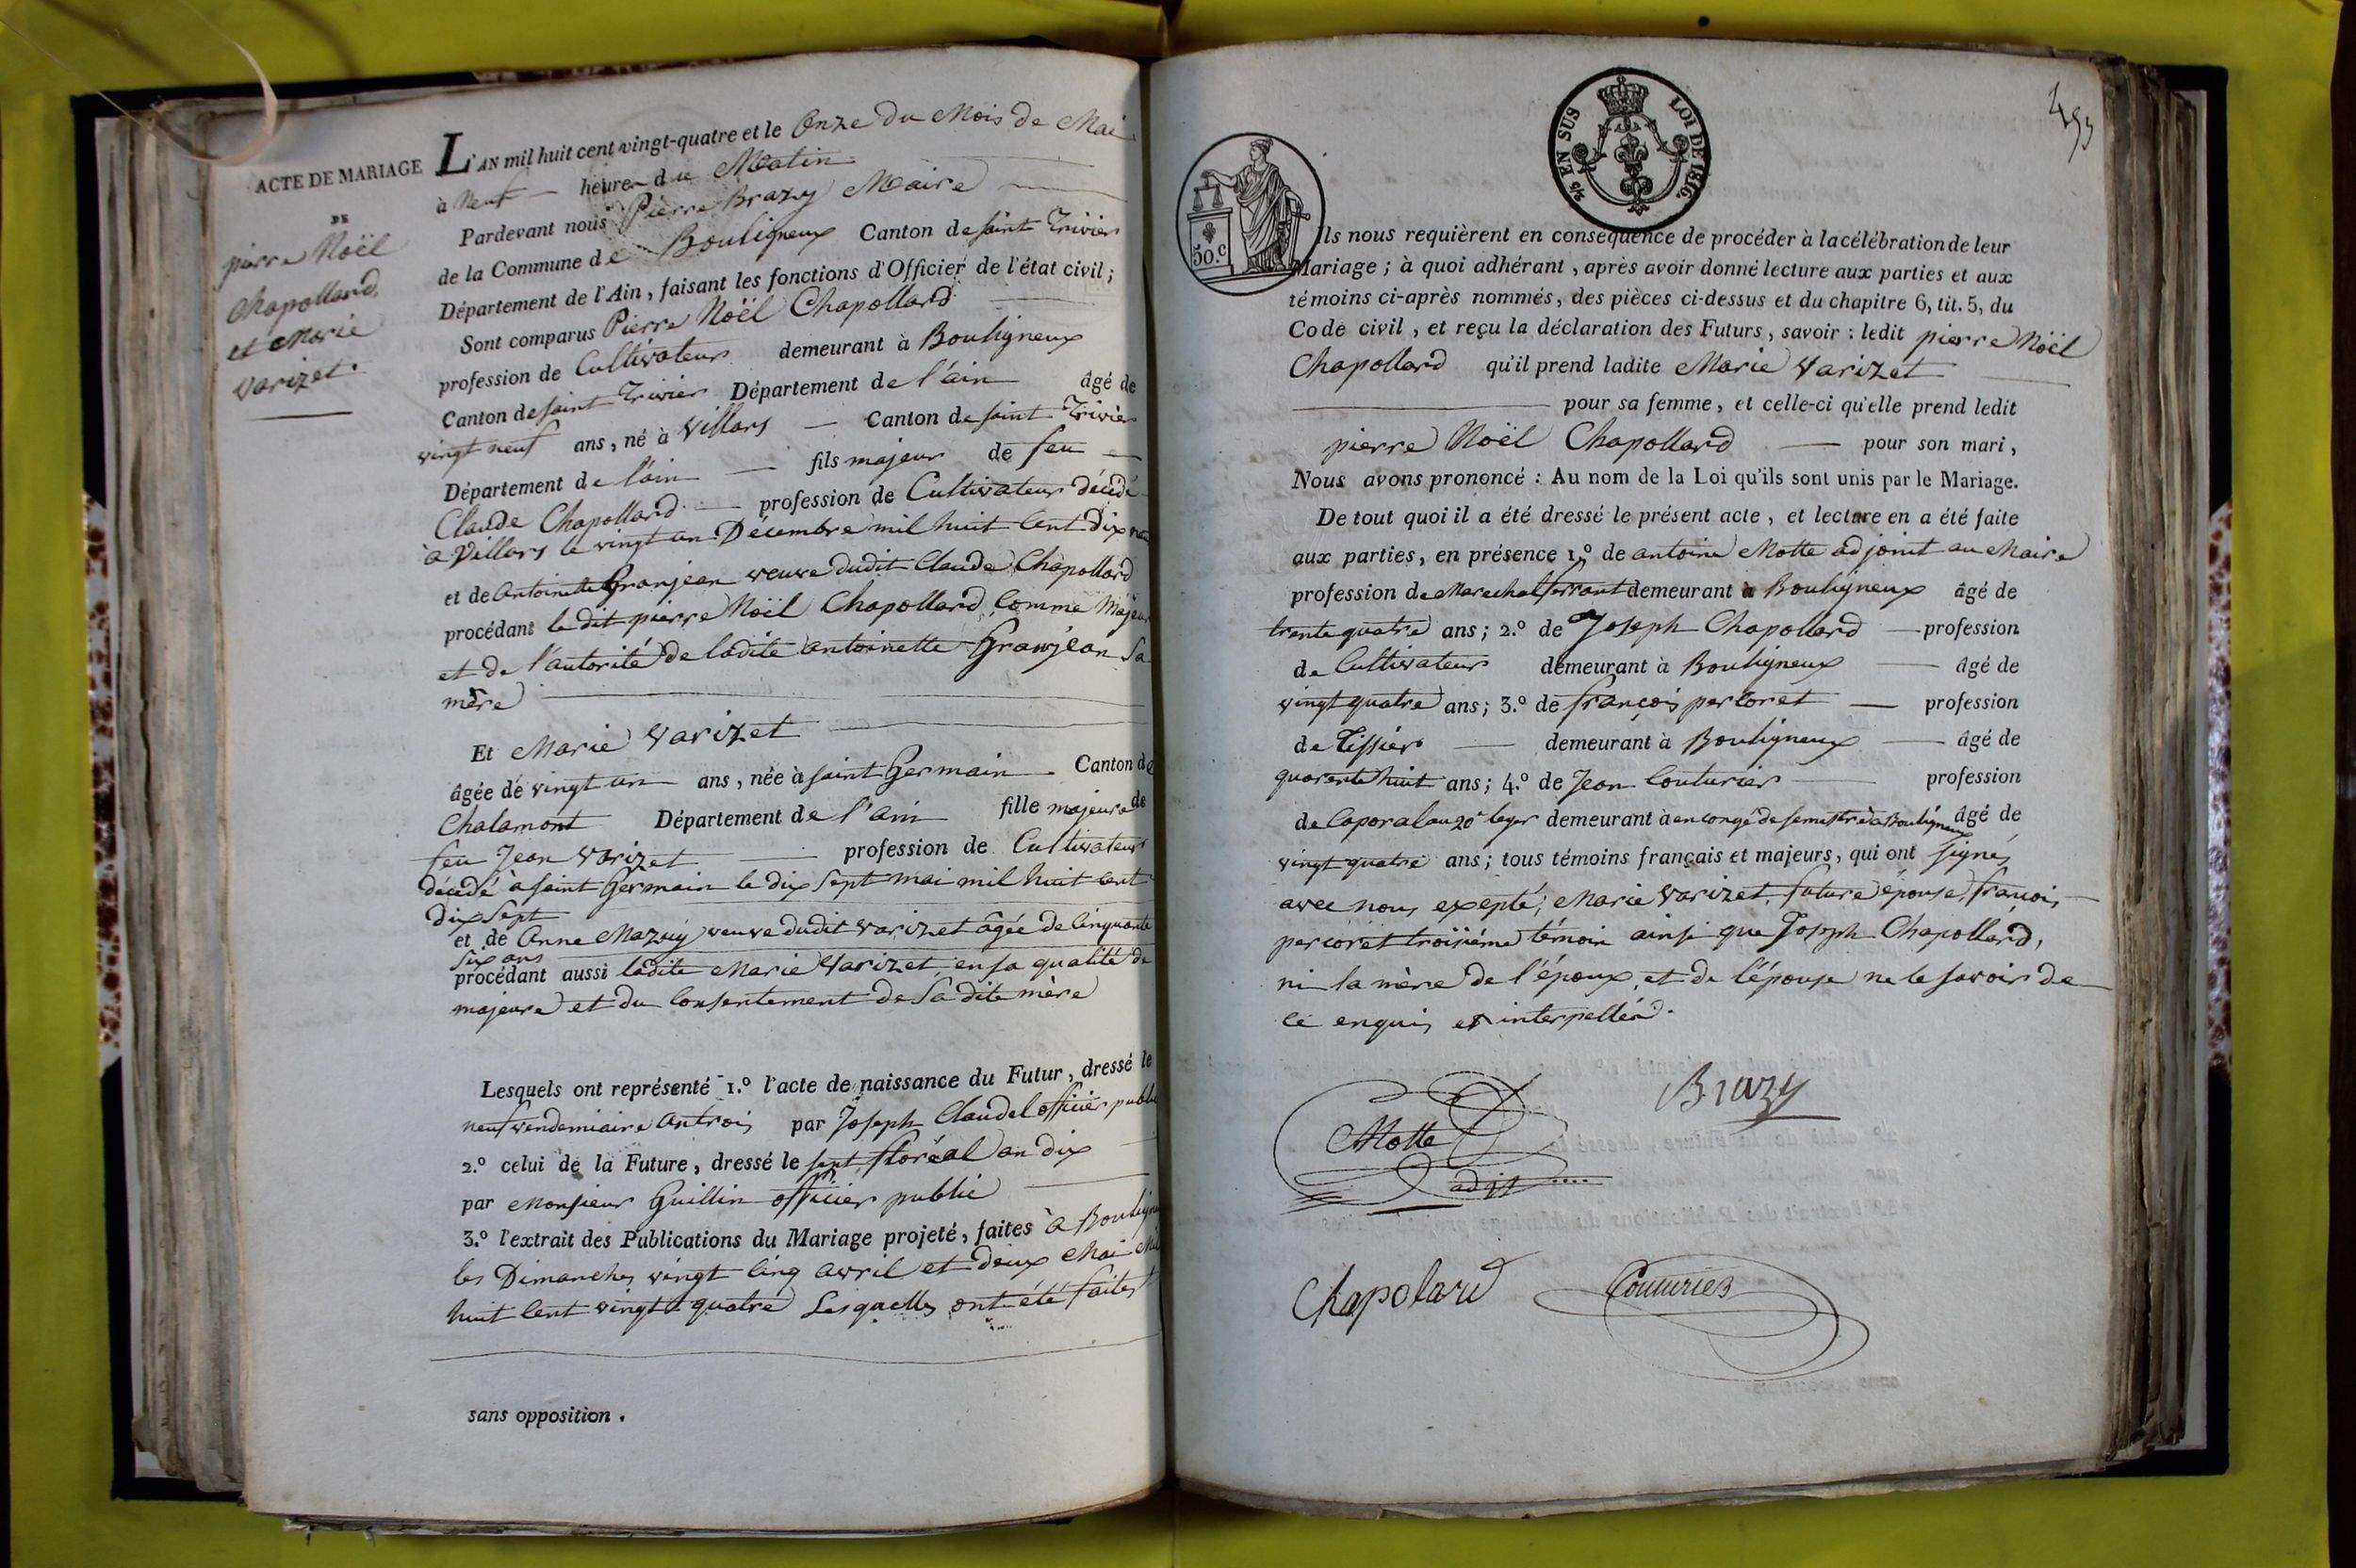 ACTE DE MARIAGE
DE
pierre Noël
Chapollard
et Marie
Varizet.
L'AN mil huit cent vingt-quatre et le Onze du Mois de Mai
à Neuf heures du Matin
Pardevant nous Pierre Brazy Maire
de la Commune de Bouligneux Canton de saint Trivier
Département de l'Ain, faisant les fonctions d'Officier de l'état civil;
Sont comparus Pierre Noël Chapollard
profession de Cultivateur demeurant à Bouligneux
Canton de saint Trivier Département de l'ain âgé de
vingt neuf ans, né à Villars Canton de saint Trivier
Département de l'ain fils majeur de feu
Claude Chapollard profession de Cultivateur décédé
à Villars le vingt un Décembre mil huit Cent dix
et de Antoinette Granjean veuve dudit Claude Chapollard
procédant le dit pierre Noël Chapollard Comme Majeur
et de l'autorité de ladite antoinette Granjean Sa
mère
Et Marie Varizet
âgée de vingt un ans, née à saint Germain Canton de
Chalamont Département de l'Ain fille majeure de
feu Jean Varizet profession de Cultivateur
décédé à saint Germain le dix sept mai mil huit cent
dix sept
et de Anne Mazuy veuve dudit Varizet âgée de Cinquante
Six ans
procédant aussi ladite Marie Varizet en sa qualité de
majeure et du Consentement de Sa dite mère
Lesquels ont représenté 1.º l'acte de naissance du Futur, dressé le
neuf vendemiaire an trois par Joseph Claudel officier public
2.º celui de la Future, dressé le sept floréal an dix
par Monsieur Guillin officier public
3.º l'extrait des Publications du Mariage projeté, faites à Bouligneux
les Dimanches vingt Cinq avril et deux Mai Mil
huit Cent vingt quatre Lesquelles ont été faites
sans opposition.
50.c
2/5 EN SUS LOI DE 1816.
493
Ils nous requièrent en conséquence de procéder à la célébration de leur
Mariage; à quoi adhérant, après avoir donné lecture aux parties et aux
témoins ci-après nommés, des pièces ci-dessus et du chapitre 6, tit. 5, du
Code civil, et reçu la déclaration des Futurs, savoir: ledit pierre Noël
Chapollard qu'il prend ladite Marie Varizet
pour sa femme, et celle-ci qu'elle prend ledit
pierre Noël Chapollard pour son mari,
Nous avons prononcé: Au nom de la Loi qu'ils sont unis par le Mariage.
De tout quoi il a été dressé le présent acte, et lecture en a été faite
aux parties, en présence 1.º de antoine Motte adjoint au Maire
profession de Marechal ferrant demeurant à Bouligneux âgé de
trente quatre ans; 2.º de Joseph Chapollard profession
de Cultivateur demeurant à Bouligneux âgé de
vingt quatre ans; 3.º de françois percoret profession
de Tissier demeurant à Bouligneux âgé de
quarente huit ans; 4.º de Jean Couturier profession
de Caporal au 20e leger demeurant à en congé de semestre à Bouligneux âgé de
vingt quatre ans; tous témoins français et majeurs, qui ont signé,
avec nous, exepté; Marie Varizet, future épouse, françois
percoret troisiéme témoin ainsi que Joseph Chapollard,
ni la mère de l'époux, et de l'épouse ne le savoir de
ce enquis et interpellés.
Brazy
Motte
adjt
Chapolard
Couturier